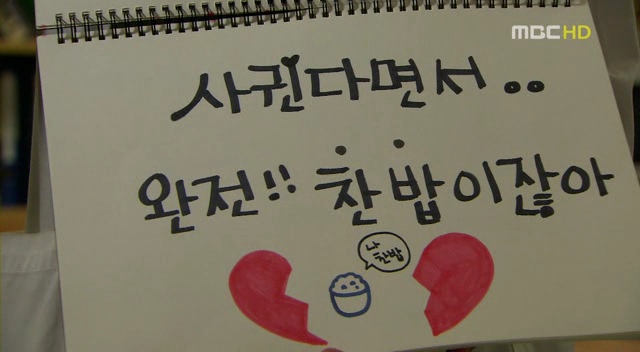 MBC HD
사귄다면서..
완전!! 찬밥이잖아
나
찬밥